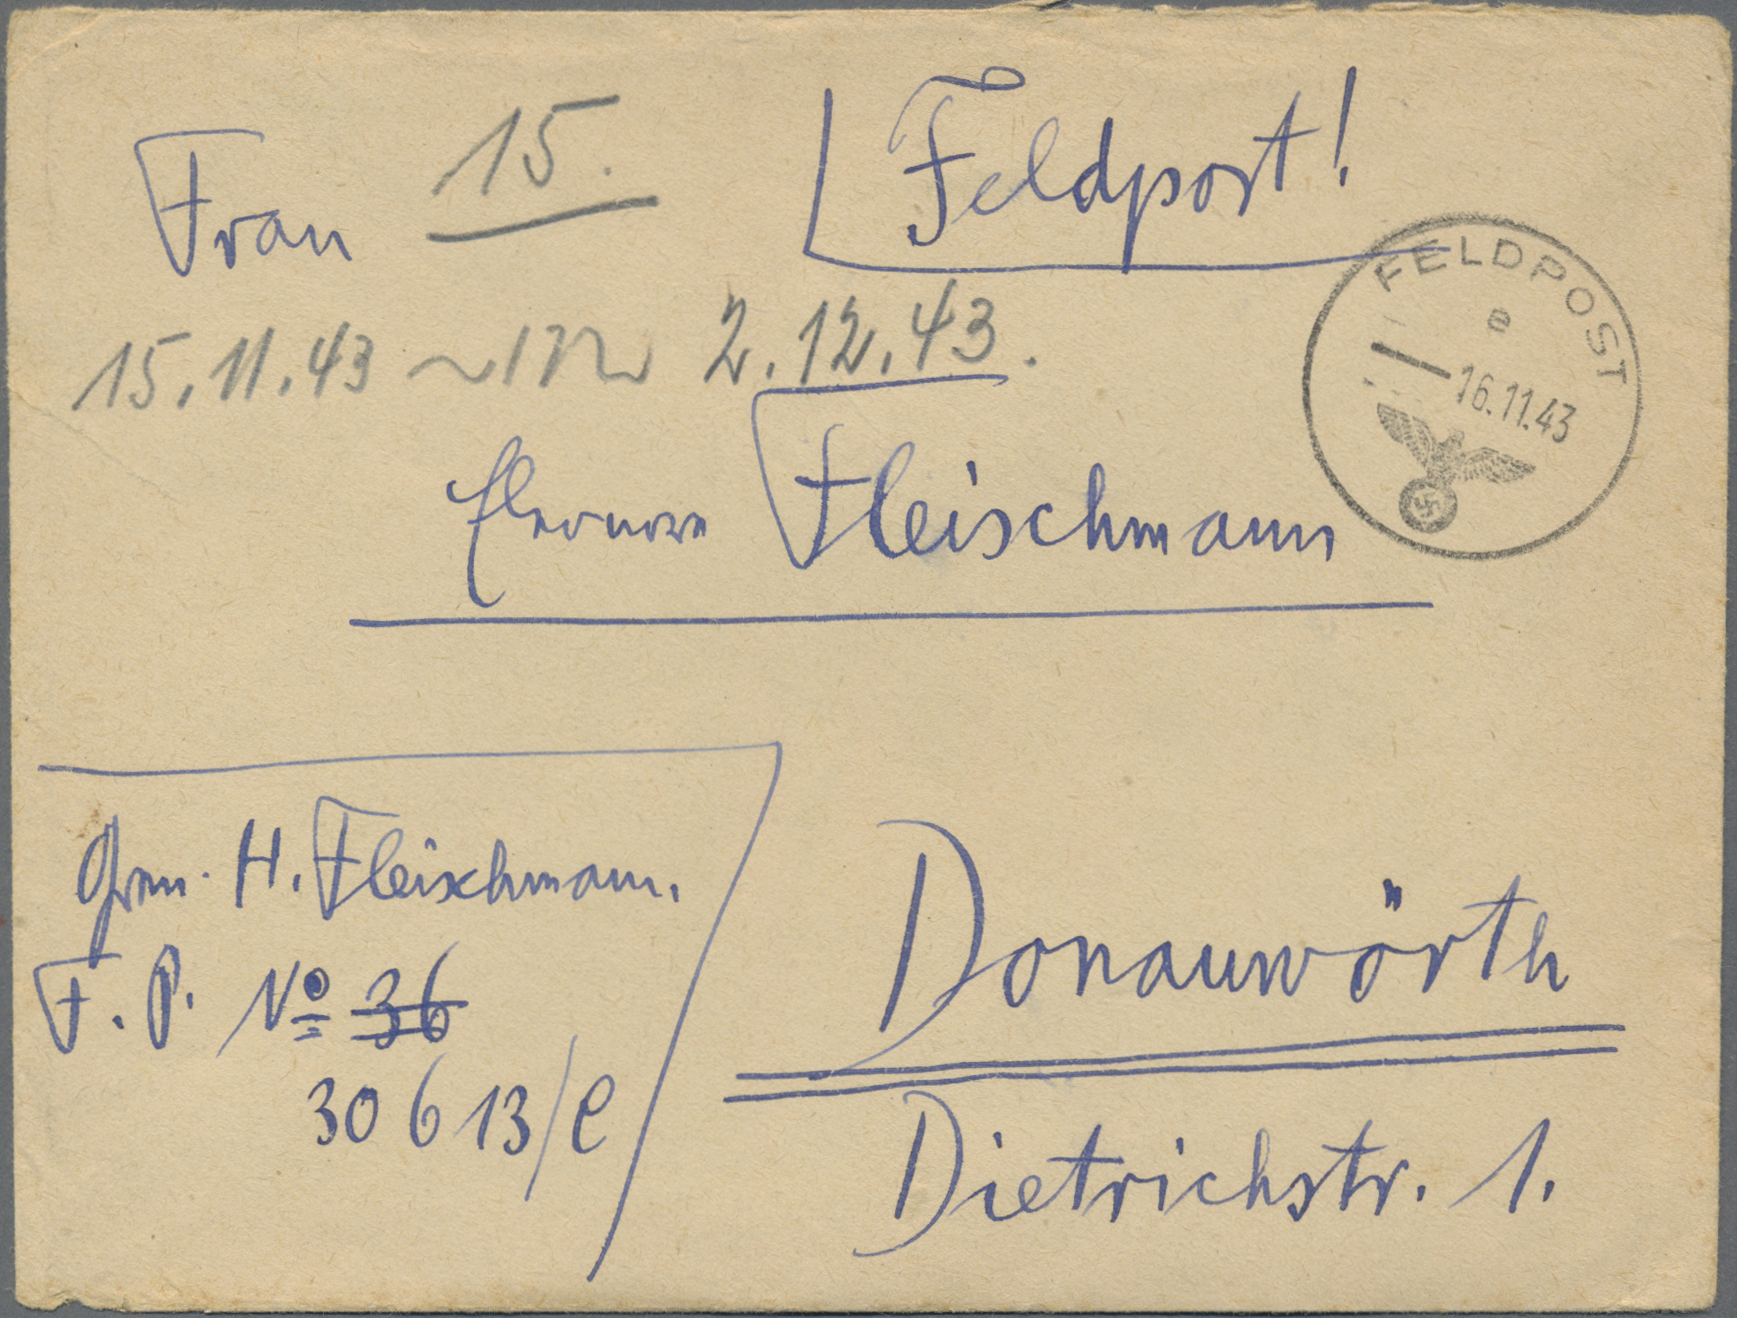 Frau 15. Feldpost!
FELDPOST
e
16.11.43
15.11.43 2.12.43.
Eleonore Fleischmann
Gren. H. Fleischmann.
F. P. No 36
30613/e
Donauwörth
Dietrichstr. 1.